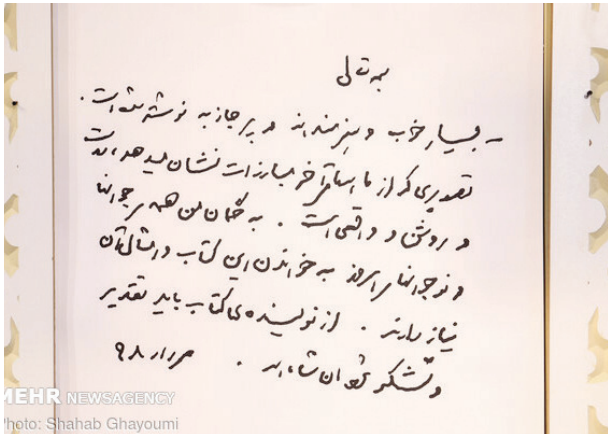 بسمه تعالی
- بسیار خوب و هنرمندانه و پرجاذبه نوشته شده است.
تصویری که از ماههای آخر مبارزات نشان میدهد، راست
و روشن و واقعی است. به گمان من همهٔ جوانها
و نوجوانهای امروز به خواندن این کتاب و امثال آن
نیاز دارند. از نویسنده‌ی کتاب باید تقدیر
و تشکر شود ان‌شاءالله. مرداد ۹۸
MEHR NEWSAGENCY
Photo: Shahab Ghayoumi